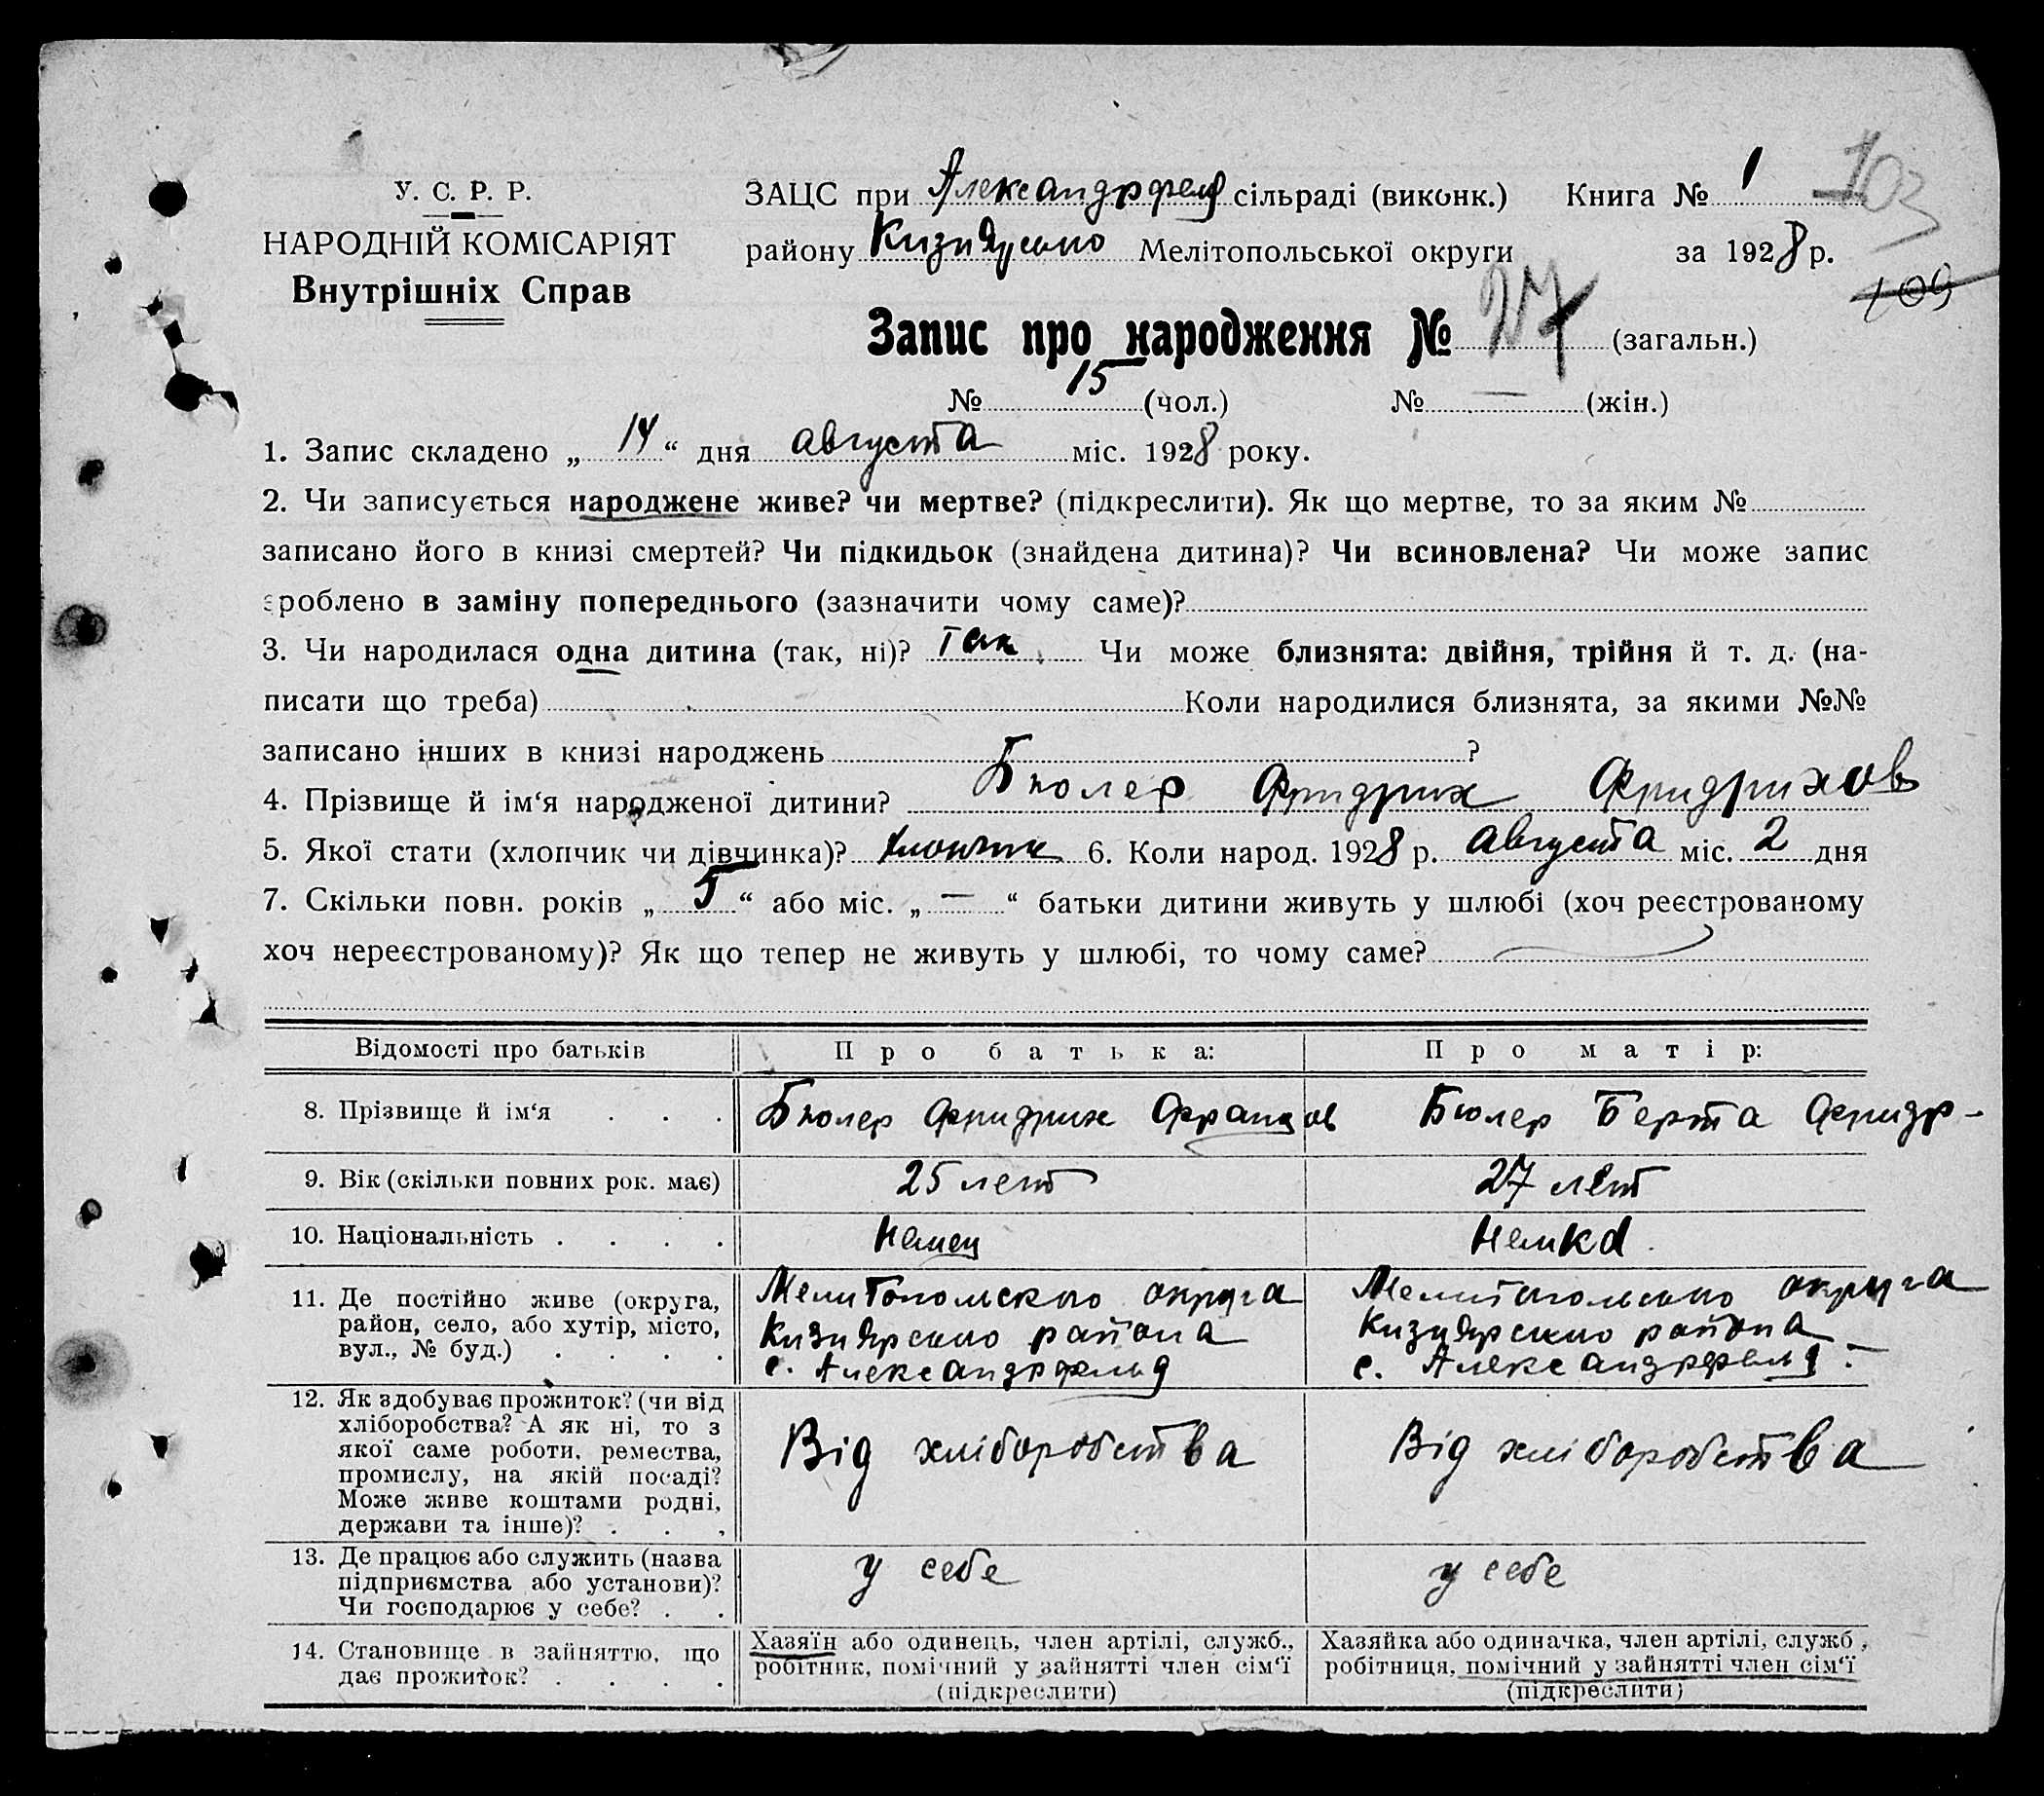 У. С. Р. Р.
НАРОДНІЙ КОМІСАРІЯТ
Внутрішніх Справ
ЗАЦС при Александрфельд сільраді (виконк.) Книга № 1
103
району Кизиярсько Мелітопольської округи за 1928 р.
109
Запис про народження № 27 (загальн.)
№ 15 (чол.) № — (жін.)
1. Запис складено „ 14 “ дня августа міс. 1928 року.
2. Чи записується народжене живе? чи мертве? (підкреслити). Як що мертве, то за яким №
записано його в книзі смертей? Чи підкидьок (знайдена дитина)? Чи всиновлена? Чи може запис
зроблено в заміну попереднього (зазначити чому саме)?
3. Чи народилася одна дитина (так, ні)? Так Чи може близнята: двійня, трійня й т. д. (на-
писати що треба) Коли народилися близнята, за якими №№
записано інших в книзі народжень ?
4. Прізвище й ім‘я народженої дитини? Бюлер Фридрих Фридрихов
5. Якої стати (хлопчик чи дівчинка)? хлопчик 6. Коли народ. 1928 р. августа міс. 2 дня
7. Скільки повн. років „ 5 “ або міс. „ — “ батьки дитини живуть у шлюбі (хоч реєстрованому
хоч нереєстрованому)? Як що тепер не живуть у шлюбі, то чому саме?
Відомості про батьків Про батька: Про матір:
8. Прізвище й ім‘я . . . Бюлер Фридрих Францов Бюлер Берта Фридр-
9. Вік (скільки повних рок. має) 25 лет 27 лет
10. Національність . . . . Немец Немка
11. Де постійно живе (округа,
район, село, або хутір, місто,
вул., № буд.) . . . .
Мелитопольского округа
Кизиярского района
с. Александрфельд
Мелитопольского округа
Кизиярского района
с. Александрфельд.
12. Як здобуває прожиток? (чи від
хліборобства? А як ні, то з
якої саме роботи, ремества,
промислу, на якій посаді?
Може живе коштами родні,
держави та інше)? . . .
Від хліборобства Від хліборобства
13. Де працює або служить (назва
підприємства або установи)?
Чи господарює у себе? . .
у себе у себе
14. Становище в зайняттю, що
дає прожиток? . . . .
Хазяїн або одинець, член артілі, служб.,
робітник, помічний у зайнятті член сім‘ї
(підкреслити)
Хазяйка або одиначка, член артілі, служб.,
робітниця, помічний у зайнятті член сім‘ї
(підкреслити)